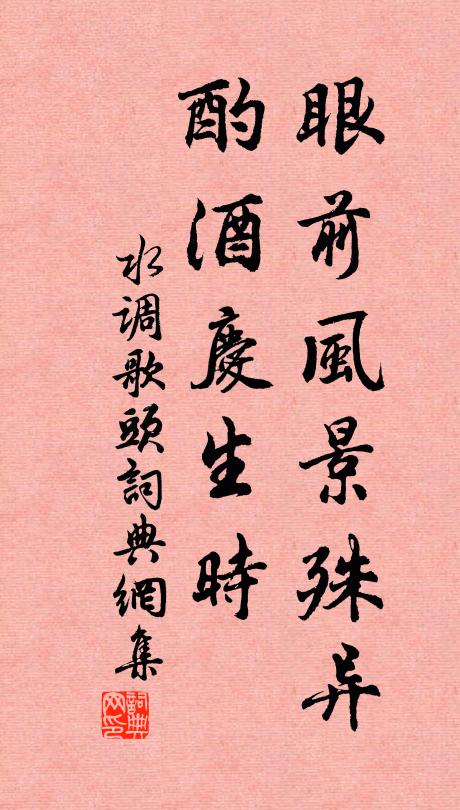 眼前風景殊异
酌酒慶生時
水调歌頭詞典網集
詞典网印